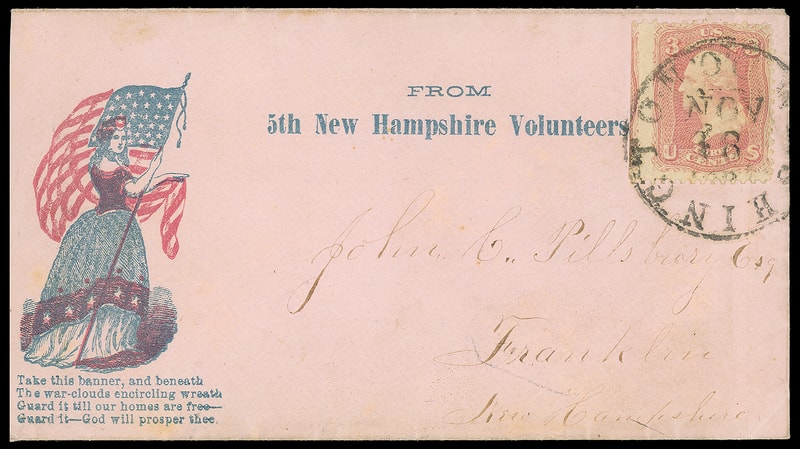 3 U S 3
U CENTS S
WASHINGTON D.C.
NOV
16
FROM
5th New Hampshire Volunteers
John C. Pillsbury Esq
Franklin
New Hampshire
Take this banner, and beneath
The war-clouds encircling wreath
Guard it till our homes are free—
Guard it—God will prosper thee.